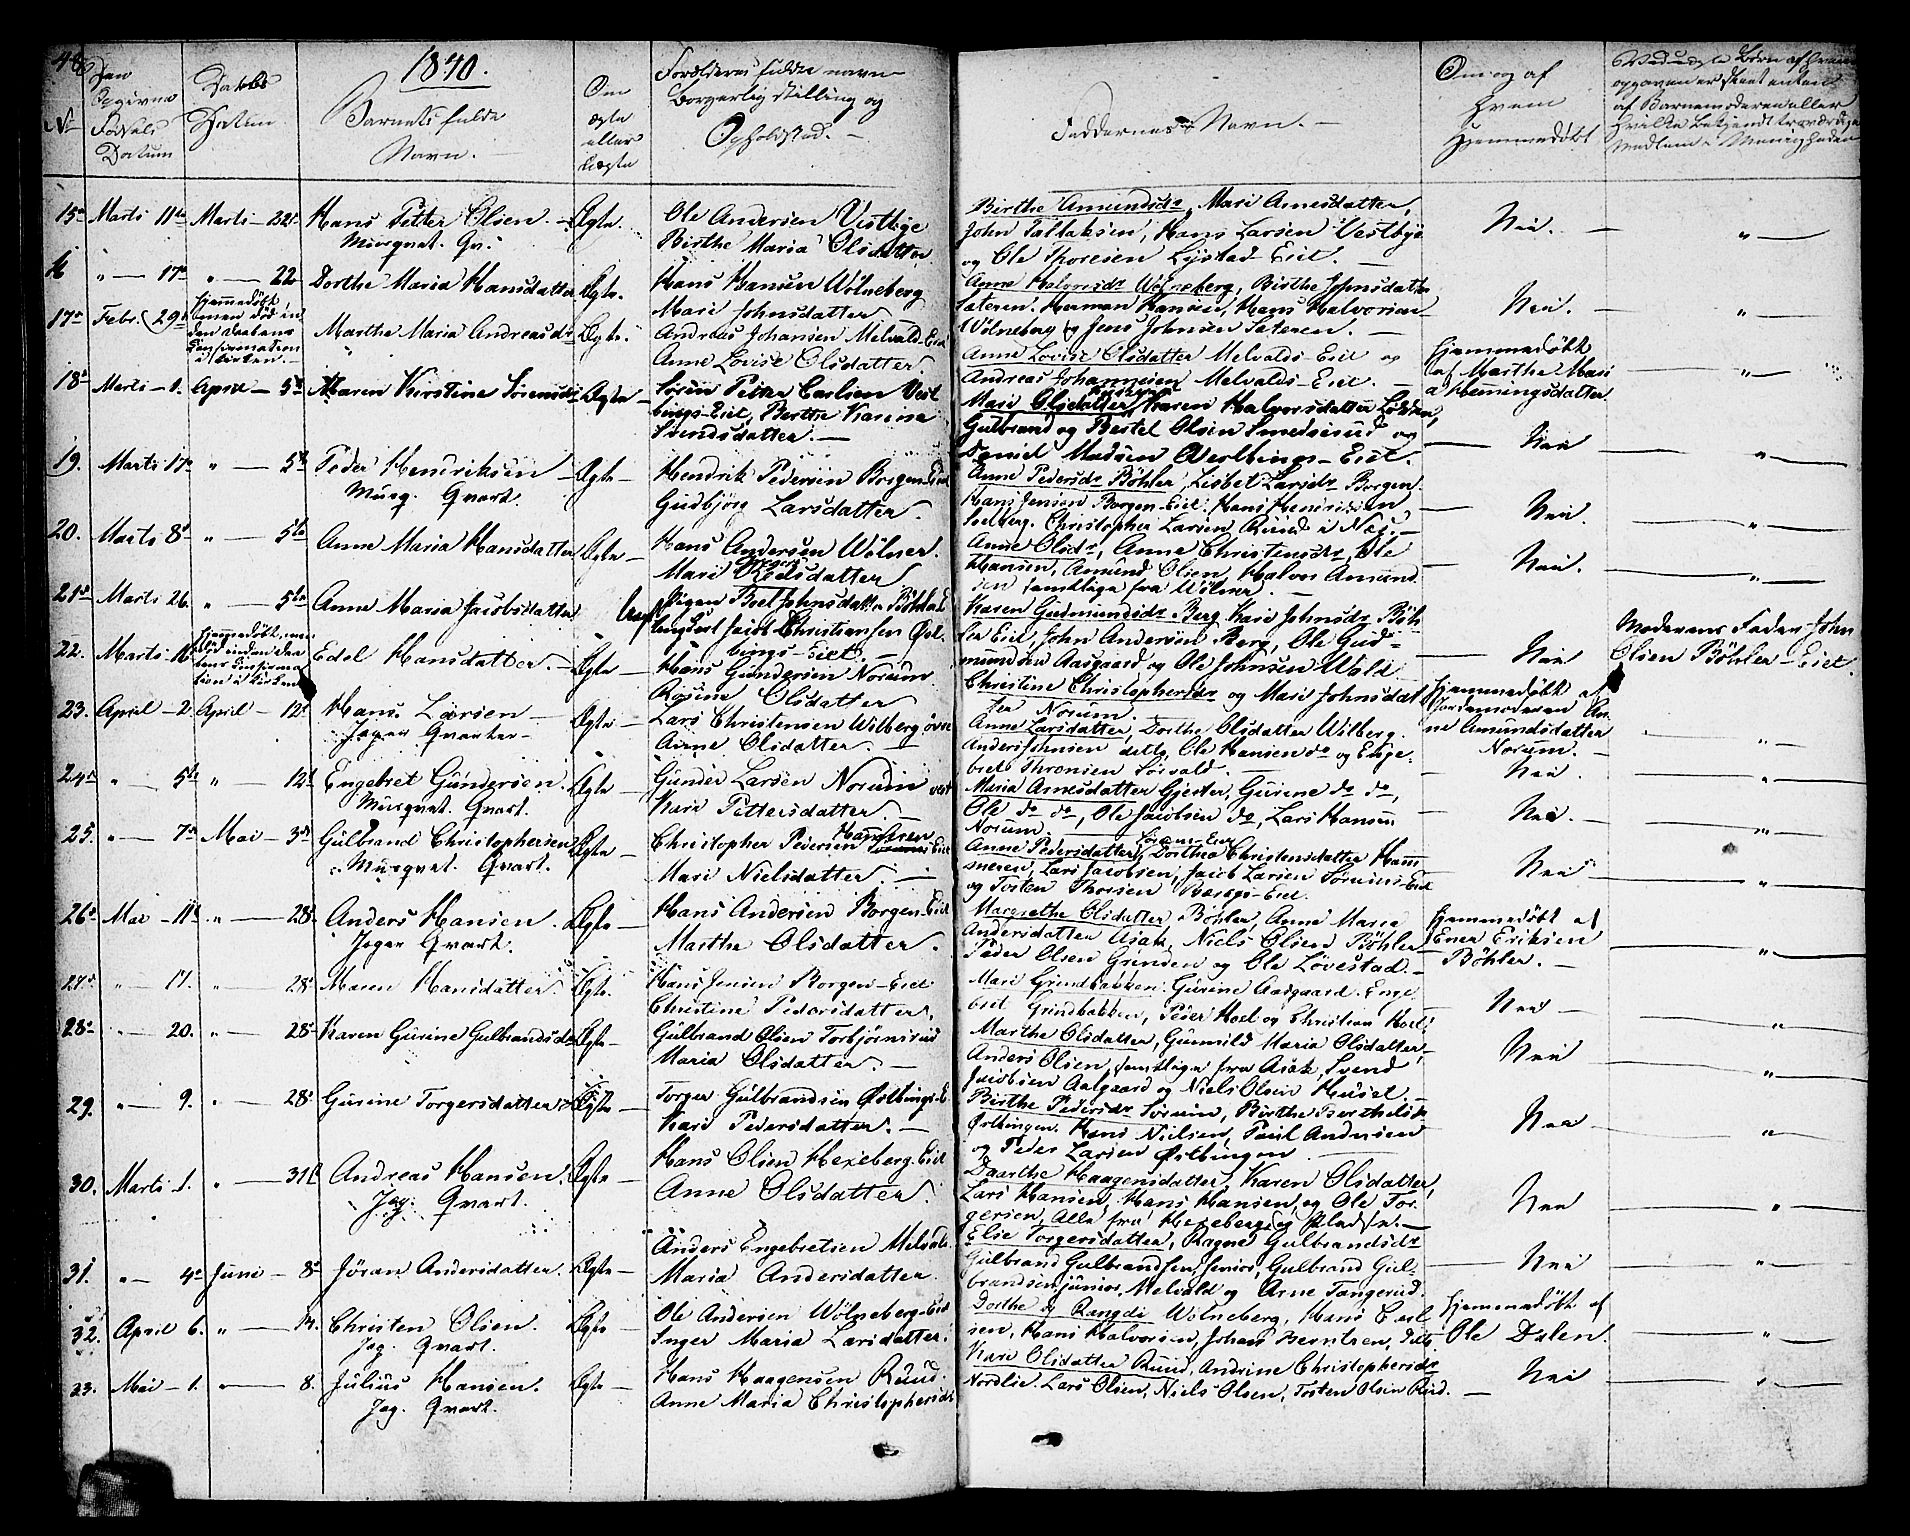 48
1840.
No
Den
Opgivne
Fødsels
Datum
Daabs
Datum
Barnets fulde
Navn.
Om
ægte
eller
uægte
Forældrenes fulde navn
borgerlig stilling og
Opholdsted.
Faddernes Navn.
Om og af
hvem
Hjemmedøbt
15. Marts 11 Marts 22 Hans Petter Olsen. Ægte. Ole Andersen Vestbye
Musqvet. Qv. Birthe Maria Olsdatter
Birthe Amundsdr, Mari Arnesdatter,
John Tallaksen, Hans Larsen Vestbye
og Ole Thoresen Lystad Eiet.
Nei.
16 " 17 " 22 Dorthe Maria Hansdatter Ægte. Hans Hansen Wølneberg
Mari Johnsdatter
Anne Halvorsdr Wølneberg, Birthe Johnsdatter
Sateren. Herman Hansen, Hans Halvorsen
Wølneberg og Jens Johnsen Sateren.
Nei.
17 Febr. 29 Hjemmedøbt,
men død in
den daabens
Confirmation
i kirken.
Marthe Maria Andreasdr Ægte. Andreas Johansen Melvald Eiet
Anne Lovise Olsdatter.
Anne Lovise Olsdatter Melvalds Eiet og
Andreas Johannesen Melvalds Eiet.
Hjemmedøbt
af Marthe Mari
a Hemingsdatter.
18 Marts 1. April 5 Maren Kirstine Sørensdr Ægte Søren Peter Carlsen Vest
bings Eiet, Berthe Karine
Svendsdatter.
Mari Olsdatter, Karen Halvorsdatter Løkken,
Gulbrand og Bertel Olsen Smedserud og
Daniel Madsen Østbings Eiet.
Nei
19. Marts 17 " 5 Peder Hendriksen Ægte Hendrik Pedersen Borgen Eiet
Musq. Qvart. Gudbjør Larsdatter.
Anne Pedersdr Bøhler, Lisbet Larsdr Borgen.
Hans Jensen Borgen Eiet. Hans Henriksen
Seeberg. Christopher Larsen Ruud i Nes.
Nei.
20. Marts 8 " 5 Anne Maria Hansdatter Ægte Hans Andersen Wølner.
Mari Olsdatter
Anne Olsdr, Anne Christensdr, Ole
Hansen, Amund Olsen, Halvor Amund
sen samtlige fra Wølner.
Nei.
21 Marts 26. " 5 Anne Maria Jacobsdatter Uægte Pigen Boel Johnsdatter Bøhler Eiet
Ungkarl Jacob Christiansen Øst
bings Eiet.
Karen Gudmundsdr Berg, Kari Johnsdr Bøh
ler Eiet, John Andersen Berg, Ole Gud=
mundsen Aasgaard og Ole Johnsen Wold
Nei
Moderens Fader John
Olsen Bøhler Eiet.
22. Marts Hjemmedøbt, men
død inden daa
bens Confirma
tion i kirken
Edel Hansdatter. Ægte Hans Gundersen Norum
Rosine Olsdatter
Christine Christophersdr og Mari Johnsdat
ter Norum.
Hjemmedøbt af
Jordemoderen An
ne Amundsdatter
Norum.
23. April 2. April 12 Hans Larsen Ægte Lars Christensen Wilberg øvre
Jæger Qvarter Anne Olsdatter.
Anne Larsdatter, Dorthe Olsdatter Wilberg.
Anders Johnsen detto, Ole Hansen do og Enge
bret Thronsen Sørvald.
Nei.
24 " 5 " 12 Engebret Gundersen. Ægte Gunder Larsen Norum vest
Musqvet. Qvart. Kari Pettersdatter.
Maria Arnesdatter Gjester, Gurine do do,
Ole do do, Ole Jacobsen do, Lars Hansen
Norum.
Nei.
25. " 7 Mai 3 Gulbrand Christophersen Ægte Christopher Pedersen Hammeren Eiet
Musqvet. Qvart. Mari Nielsdatter.
Anne Pedersdatter, Dorthea Christensdatter Ham
meren, Lars Jacobsen, Jacob Larsen Sørums Eiet
og Torsten Thorsen Bærsgs Eiet.
Nei
26 Mai 11 " 28 Anders Hansen. Ægte Hans Andersen Borgen Eiet
Jæger Qvart. Marthe Olsdatter.
Margrethe Olsdatter Bøhler, Anne Marie
Andersdatter Asak, Niels Olsen Bøhler
Peder Olsen Grinden og Ole Løvestad.
Hjemmedøbt af
Ener Eriksen
Bøhler.
27 " 17. " 28 Maren Hansdatter. Ægte. Hans Jensen Borgen Eiet
Christine Pedersdatter.
Mari Grindbakken. Gurine Aasgaard. Enge
bret Grindbakken, Peder Hoel og Christian Hoel.
Nei
28 " 20. " 28 Karen Gurine Gulbrandsdr Ægte Gulbrand Olsen Torbjørnsrud
Maria Olsdatter.
Marthe Olsdatter, Gunnild Maria Olsdatter,
Anders Olsen, samtlige fra Asak, Svend
Jacobsen Aasgaard og Niels Olsen Huset.
Nei
29. " 9. " 28 Gurine Torgersdatter Ægte Torger Gulbrandsen Østbings E
Kari Pedersdatter.
Birthe Pedersdr Sørum, Birthe Berthelsdr
Østbingen. Hans Nielsen, Paul Andersen
og Peder Larsen Østbingen
Nei
30. Marts 1. " 31 Andreas Hansen. Ægte Hans Olsen Hexeberg Eiet
Jæg. Qvart. Anne Olsdatter.
Daarthe Haagensdatter, Karen Olsdatter,
Lars Hansen. Hans Hansen, og Ole Tor
gersen, Alle fra Hexeberg og Pladse.
Nei
31. " 4 Juni 8 Jøran Andersdatter. Ægte Anders Engebretsen Melvald.
Maria Andersdatter.
Elie Torgersdatter, Ragne Gulbrandsdr
Gulbrand Gulbrandsen, senior, Gulbrand Gul=
brandsen junior, Melvald og Arne Tangerud.
Nei
32. April 6. " 14. Christen Olsen. Ægte Ole Andersen Wølneberg Eiet
Jæg. Qvart. Inger Maria Larsdatter.
Dorthe og Rangdi Wølneberg, Hans Carl
sen, Hans Halvorsen, Johans Berntsen,
Hjemmedøbt af
Ole Dalen.
33. Mai 1. " 8. Julius Hansen. Ægte Hans Haagensen Ruud.
Jæg. Qvart. Anne Maria Christophersdr
Kari Olsdatter Ruud, Andrine Christophersdr
Nordlie. Lars Olsen, Niels Olsen, Torsten Olsen Rud.
Nei